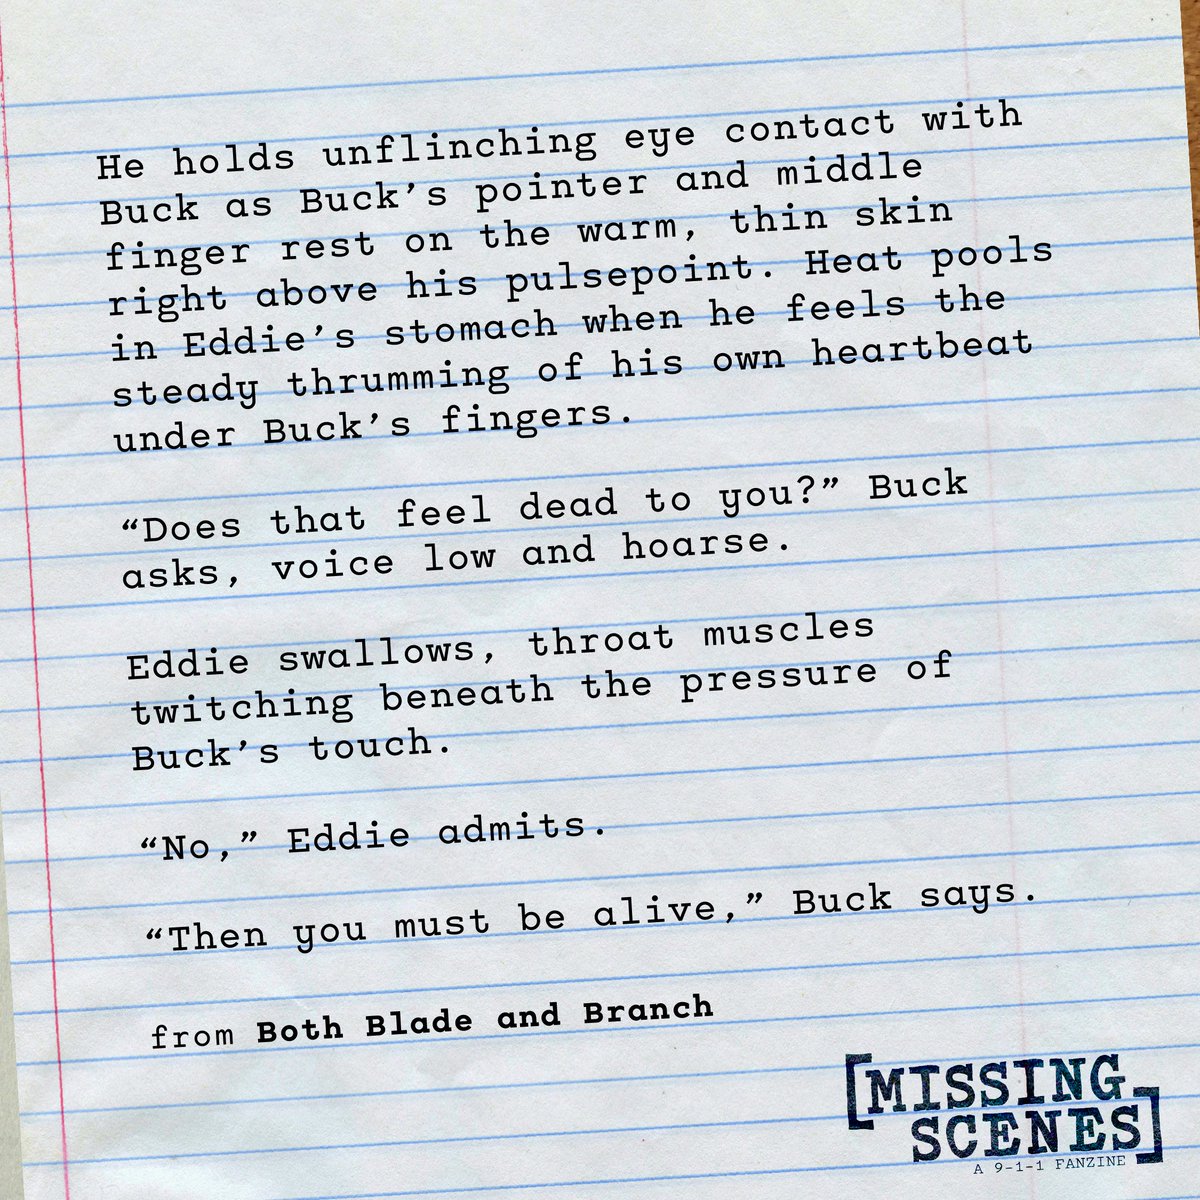 He holds unflinching eye contact with
Buck as Buck’s pointer and middle
finger rest on the warm, thin skin
right above his pulsepoint. Heat pools
in Eddie’s stomach when he feels the
steady thrumming of his own heartbeat
under Buck’s fingers.
“Does that feel dead to you?” Buck
asks, voice low and hoarse.
Eddie swallows, throat muscles
twitching beneath the pressure of
Buck’s touch.
“No,” Eddie admits.
“Then you must be alive,” Buck says.
from Both Blade and Branch
[MISSING
SCENES]
A 9-1-1 FANZINE